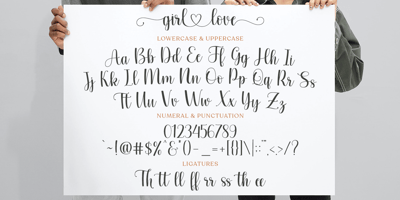 girl love
LOWERCASE & UPPERCASE
Aa Bb Dd Ee Ff Gg Hh Ii
Jj Kk Ll Mm Nn Oo Pp Qq Rr Ss
Tt Uu Vv Ww Xx Yy Zz
NUMERAL & PUNCTUATION
0123456789
`~!@#$%^&*()-_=+[{]}\|;:'",<.>/?
LIGATURES
Th tt ll ff rr ss th ee